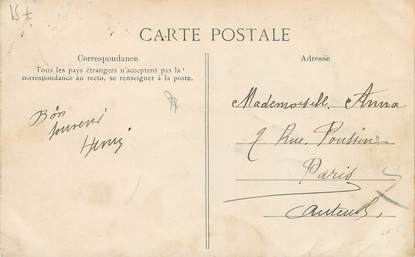 CARTE POSTALE
Correspondance
Tous les pays étrangers n'acceptent pas la
correspondance au recto, se renseigner à la poste.
Bon
souvenir
Henri
Adresse
Mademoiselle Anna
Rue Poussin
Paris
Auteuil